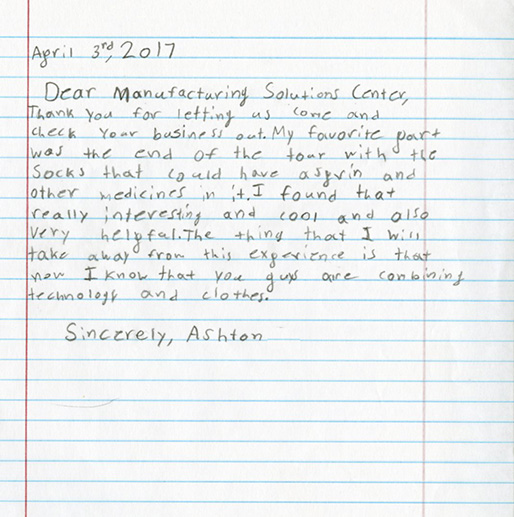 April 3rd, 2017
Dear Manufacturing Solutions Center,
Thank you for letting us come and
check your business out. My favorite part
was the end of the tour with the
socks that could have asprin and
other medicines in it. I found that
really interesting and cool and also
very helpful. The thing that I will
take away from this experience is that
now I know that you guys are combining
technology and clothes.
Sincerely, Ashton